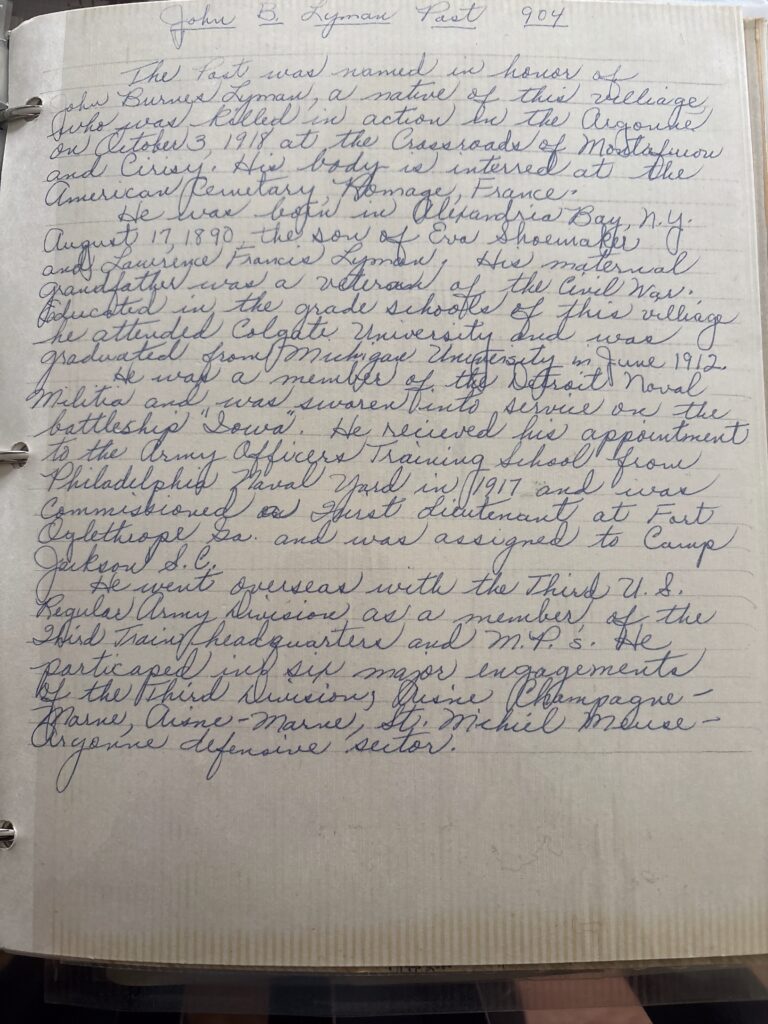 John B. Lyman Post 904
The Post was named in honor of
John Burnes Lyman, a native of this villiage,
who was killed in action in the Argonne
on October 3, 1918 at the Crossroads of Montafucon
and Cirisy. His body is interred at the
American Cemetary, Romage, France.
He was born in Alexandria Bay, N.Y.
August 17, 1890 the son of Eva Shoemaker
and Lawrence Francis Lyman. His maternal
grandfather was a veteran of the Civil War.
Educated in the grade schools of this villiage
he attended Colgate University and was
graduated from Michigan University in June 1912.
He was a member of the Detroit Naval
Militia and was sworen into service on the
battleship "Iowa". He recieved his appointment
to the Army Officers Training School from
Philadelphia Naval Yard in 1917 and was
Commissioned a First Lieutenant at Fort
Oglethrope Ga. and was assigned to Camp
Jackson S.C.
He went overseas with the Third U.S.
Regular Army Division as a member of the
Third Train headquarters and M.P.'s. He
particaped in six major engagements
of the Third Division, Aisne Champagne-
Marne, Aisne-Marne, St. Mihiel Meuse-
Argonne defensive sector.